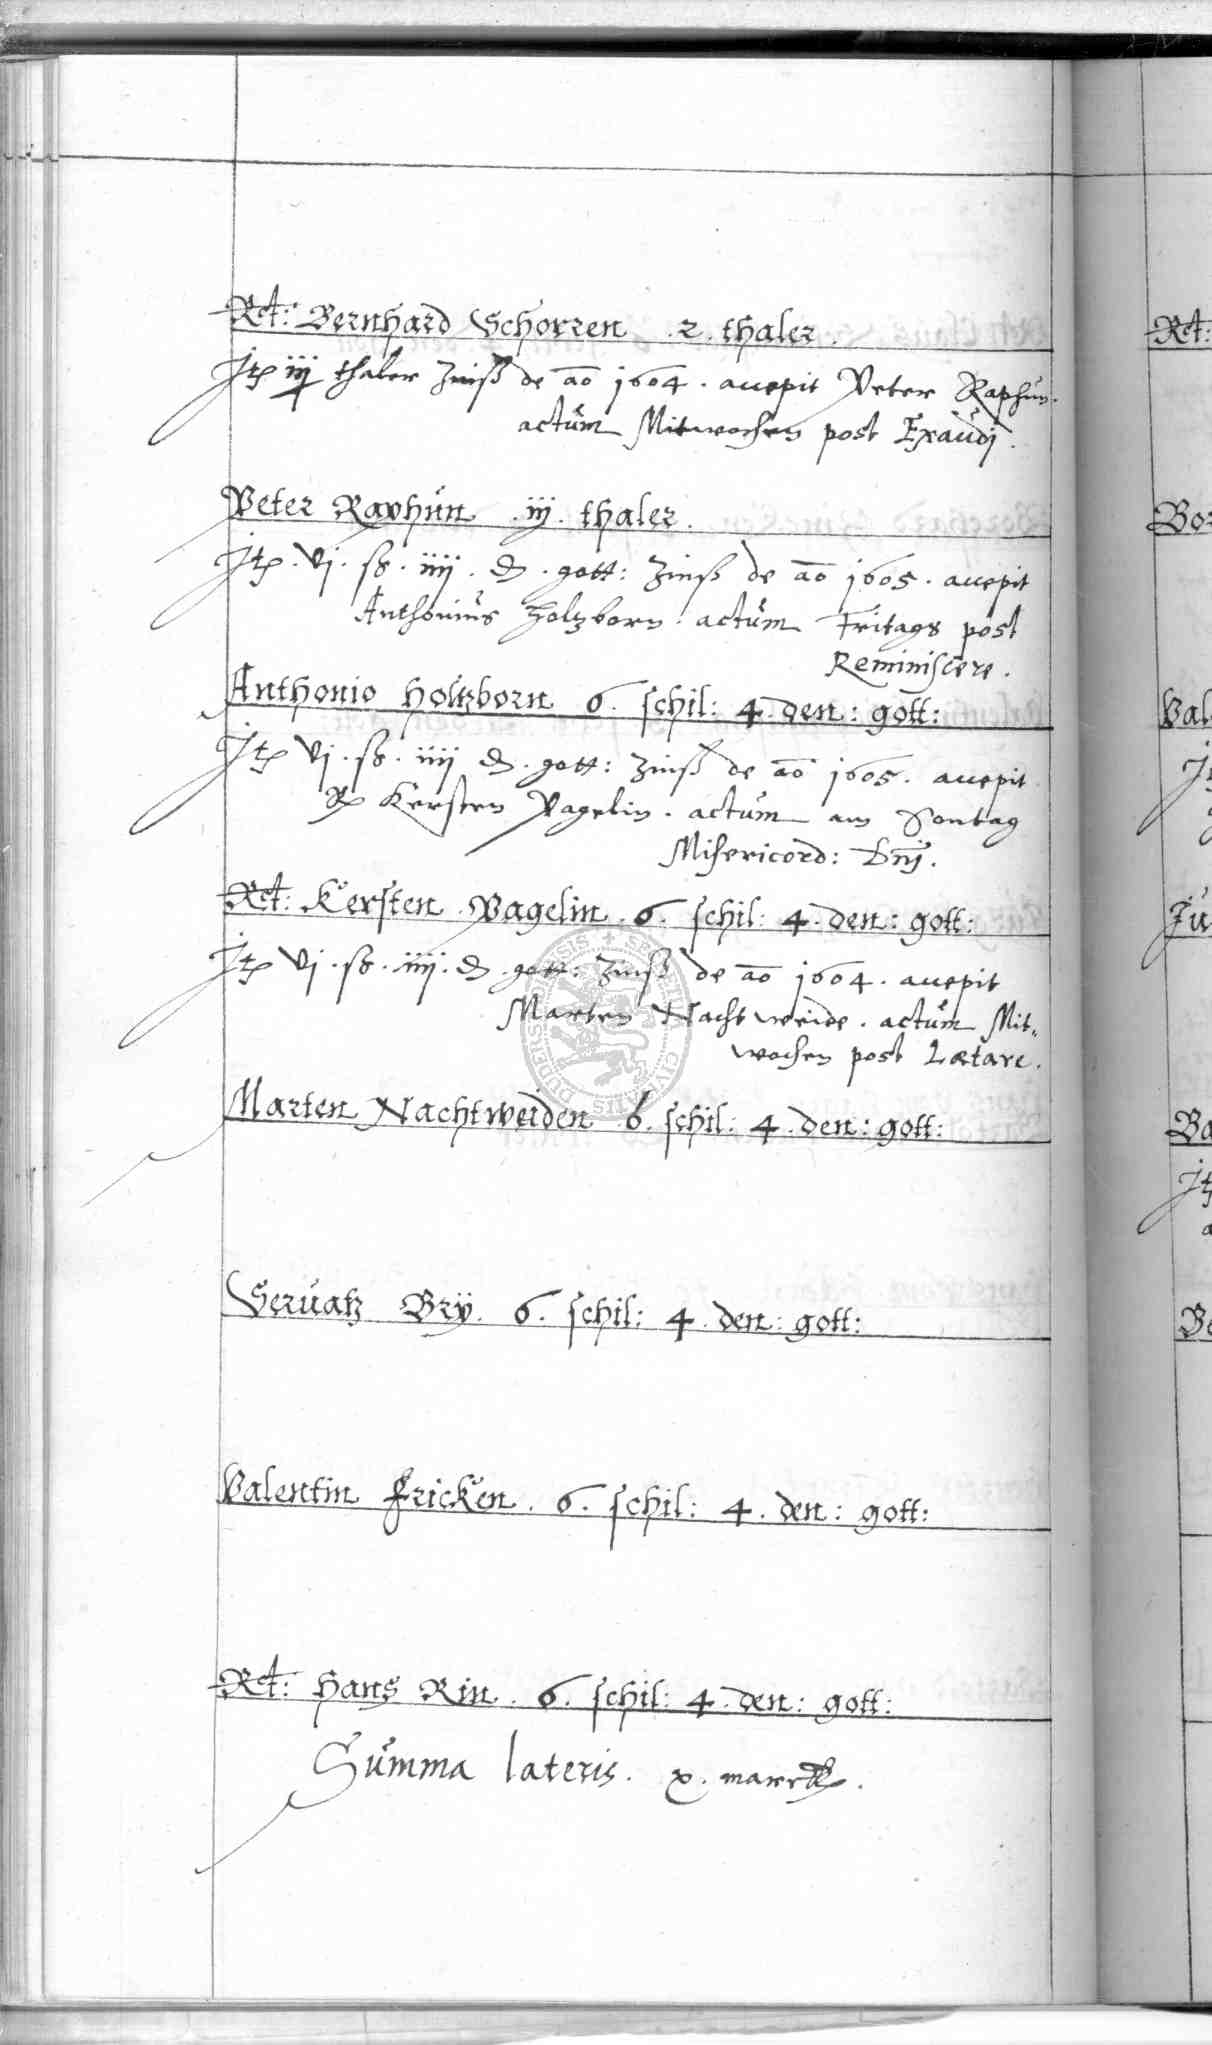 Rct: Bernhard Schorren . 2 . thaler .
Jtē iij thaler Zinß de ao 1604 . accepit Peter Raphun .
actum Mitwochen post Exaudj .
Peter Raphun . iij . thaler .
Jtē . vj . ß . iiij . d . gott: Zinß de ao 1605 . accepit
Anthonius Holtzborn . actum Fritags post
Reminiscere .
Anthonio Holtzborn 6 . schil: 4 . den: gott:
Jtē vj . ß . iiij d . gott: Zinß de ao 1605 . accepit
Kersten Pagelin . actum am Sontag
Misericord: Dnj .
Rct: Kersten Pagelin . 6 . schil: 4 . den: gott:
Jtē vj . ß . iiij . d . gott: Zinß de ao 1604 . accepit
Marten Nachtweide . actum Mit„
wochen post Lætare .
Marten Nachtweiden 6 . schil: 4 . den: gott:
Seruatz Brÿ . 6 . schil: 4 . den: gott:
Valentin Fricken . 6 . schil: 4 . den: gott:
Rct: Hans Rin . 6 . schil: 4 . den: gott:
Summa lateris . x . marck .
Rct:
Val
Ju
Ba
Jt
Be